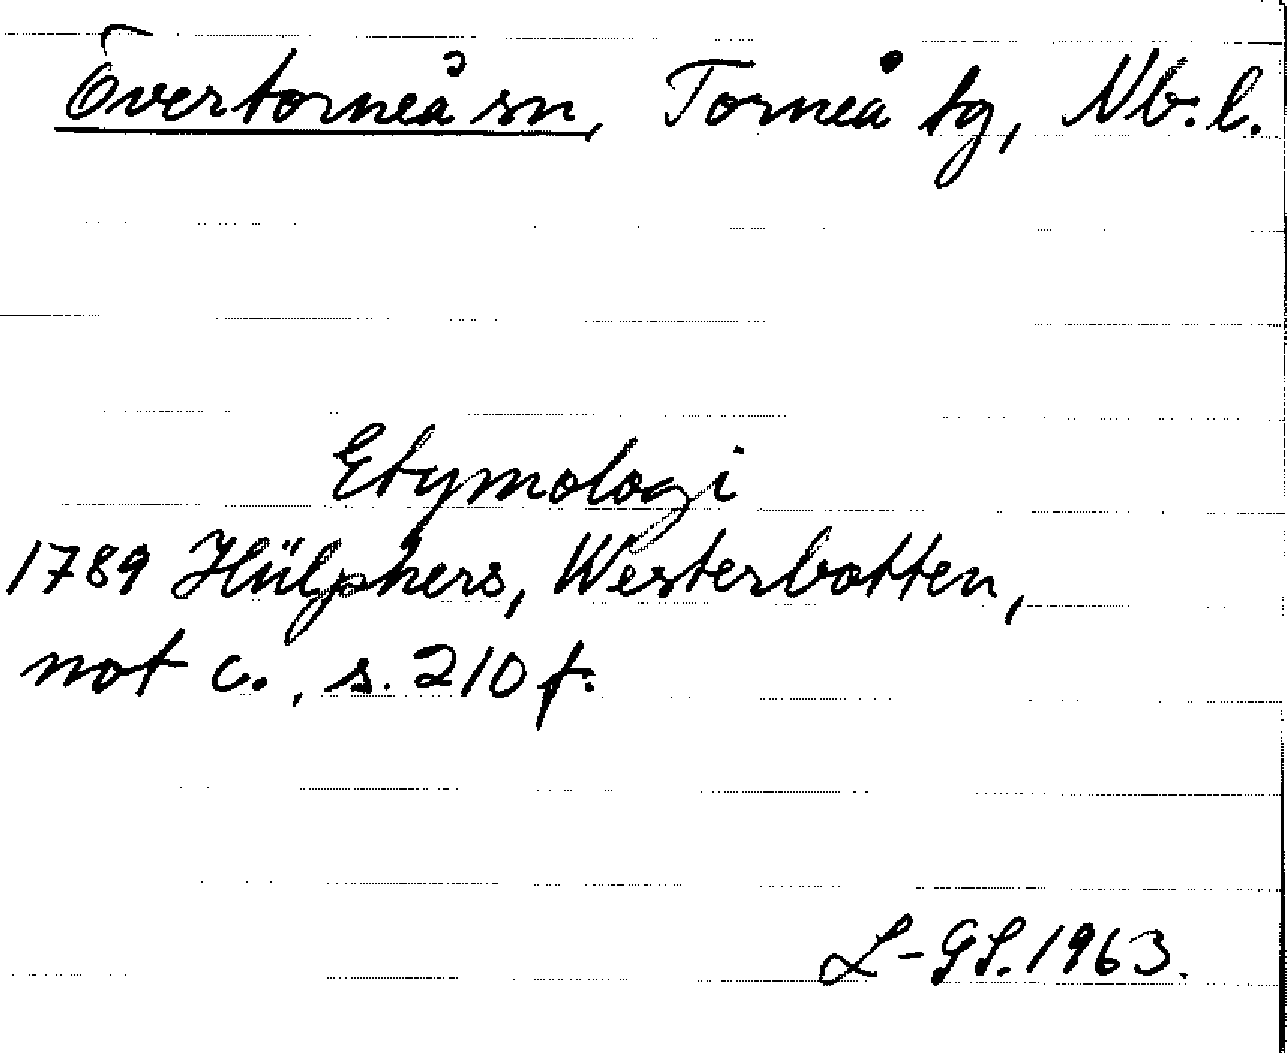 Övertorneå sn, Torneå tg, Nb. l.
Etymologi
1789 Hülphers, Westerbotten,
not c., s. 210 f.
L-GS. 1963.